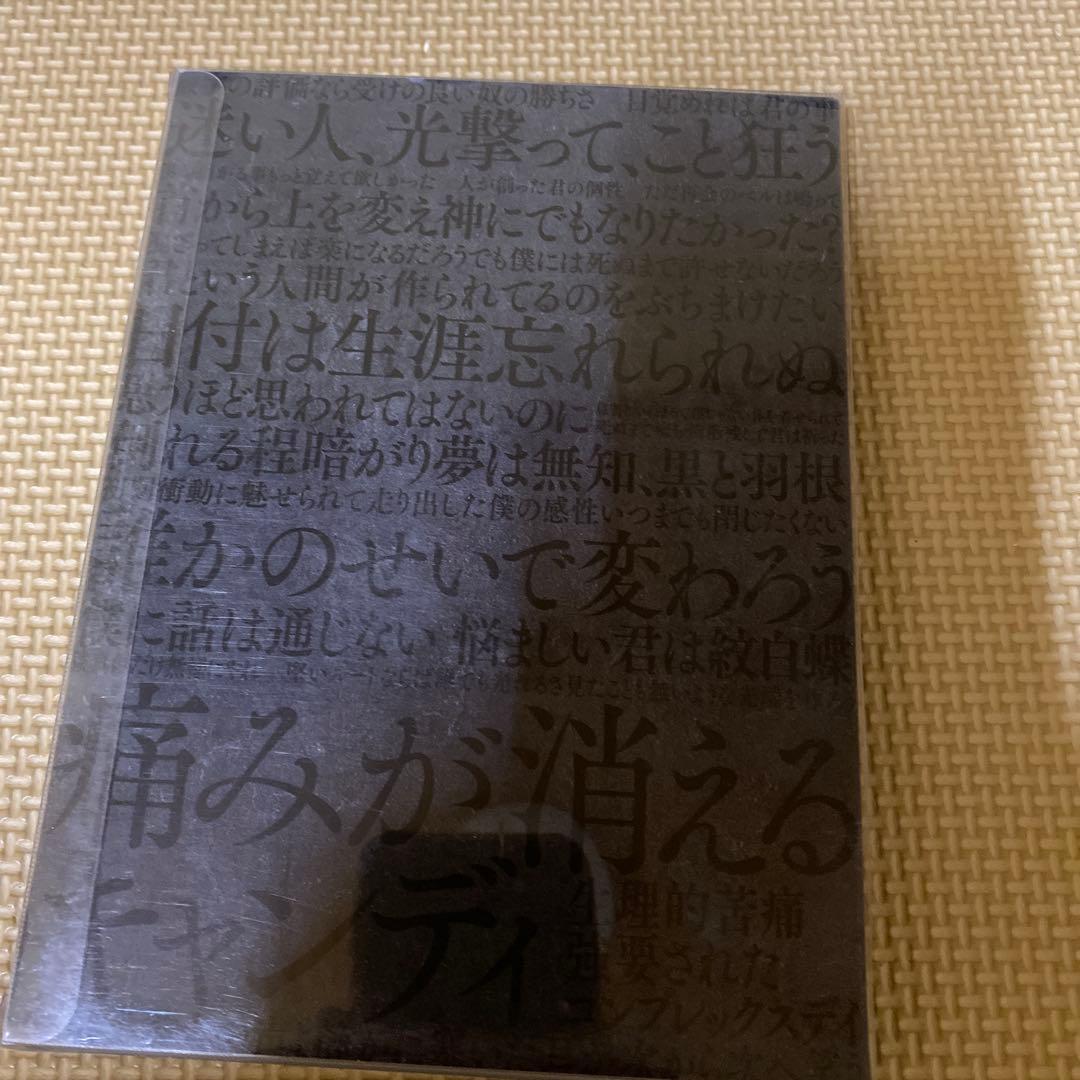 の評価なら受けの良い奴の勝ちさ 目覚めれば君の
迷い人、光撃って、こと狂う
もっと覚えて欲しかった 人が創った君の個性 ただ
から上を変え神にでもなりたかった?
ってしまえば楽になるだろうでも僕には死ぬまで許せないだろう
という人間が作られてるのをぶちまけたい
日付は生涯忘れられぬ
ほど思われてはないのに
れる程暗がり夢は無知、黒と羽根
衝動に魅せられて走り出した僕の感性いつまでも閉じたくない
誰かのせいで変わろう
に話は通じない 悩ましい君は紋白蝶
痛みが消える
キャンディ
生理的苦痛
強要された
コンプレックスディ